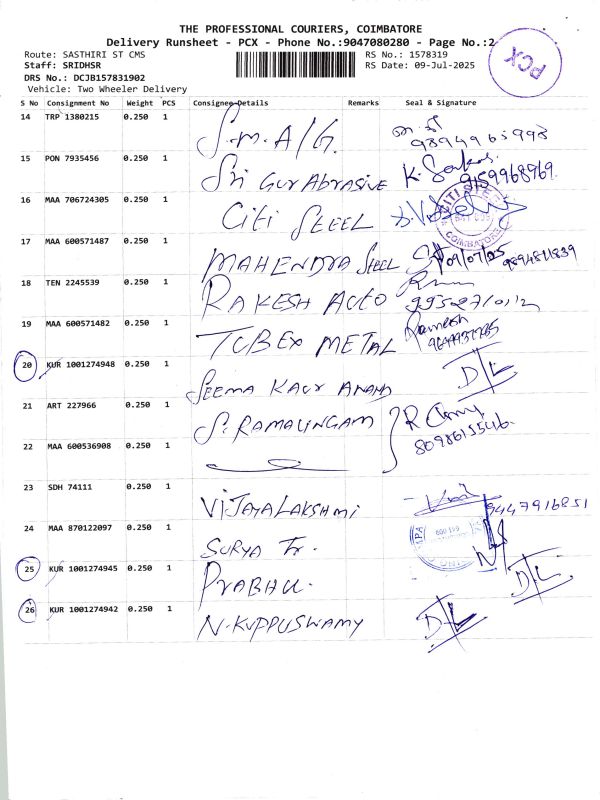 THE PROFESSIONAL COURIERS, COIMBATORE
Delivery Runsheet - PCX - Phone No.:9047080280 - Page No.:2
Route: SASTHIRI ST CMS
RS No.: 1578319
Staff: SRIDHSR
RS Date: 09-Jul-2025
DRS No.: DCJB157831902
Vehicle: Two Wheeler Delivery
PCX
S No Consignment No Weight PCS Consignee Details Remarks Seal & Signature
14 TRP 1380215 0.250 1 S.M.A/G. 9894965998
15 PON 7935456 0.250 1 Sri Gur Abrasive K. 9159968969.
16 MAA 706724305 0.250 1 Citi Steel
CITI STEEL
COIMBATORE
17 MAA 600571487 0.250 1 MAHENDRA Steel 09/07/25 9894811839
18 TEN 2245539 0.250 1 RAKESH Auto
19 MAA 600571482 0.250 1 TUBEX METAL Ramesh
20 KUR 1001274948 0.250 1 Seema Kaur Anand D/L
21 ART 227966 0.250 1 S. RAMALINGAM R
22 MAA 600536908 0.250 1
23 SDH 74111 0.250 1 VIJAYALAKSHMI 9447916851
24 MAA 870122097 0.250 1 SURYA Tr.
25 KUR 1001274945 0.250 1 PRABHU. D/L
26 KUR 1001274942 0.250 1 N. KUPPUSWAMY D/L